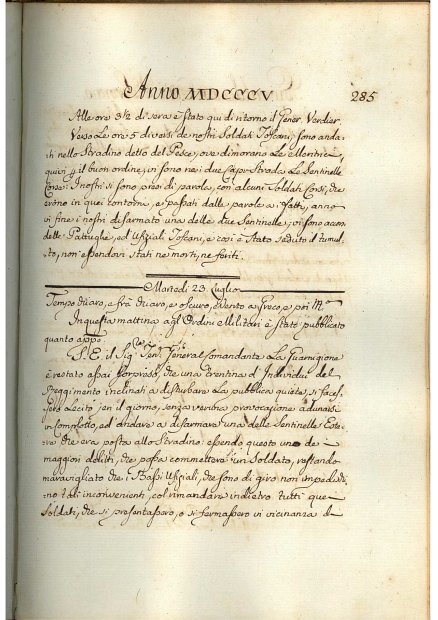 Anno MDCCCV 285
Alle ore 3½ di sera è stato qui di ritorno il Gener. Verdier
Verso Le ore 5 diversi de nostri Soldati Toscani, sono anda
ti nello Stradino detto del Pesce, ove dimorano Le Meretrici,
quin p. il buon ordine, vi sono nei due Capi-Strada Le Sentinelle
Corse: I nostri si sono presi di parola, con alcuni Soldati Corsi, che
erono in que contorni, e passati dalle parole a i fatti, anno
in fine i nostri disarmato una delle due Sentinelle; vi sono accorse
delle Pattuglie, ed Ufiziali Toscani, e così è Stato seduto il tumul
to, non essendovi stati ne morti, ne feriti.
Martedì 23 Luglio
Tempo chiaro, e frà chiaro, e oscuro, Vento a Greco, e poi
In questa mattina agl' Ordini Militari è stato pubblicato
quanto app.
S. E. il Sig. Ten. General Comandante La Guarnigione
è restato assai sorpreso, che una trentina d' Individui del
Reggimento inclinati a disturbare La pubblica quiete, si faces
sero Lecito, jeri il giorno, senza veruna provocazione adunarsi
in complotto, ed andare a disarmare una delle Sentinelle Este
re che era posta allo Stradino: essendo questo uno de
maggiori delitti, che possa commettere un Soldato, restando
maravigliato che i Bassi Ufiziali, che sono di giro non impedischi
no tali inconvenienti, col rimandare indietro tutti que
Soldati, che si presentassero, o si fermassero in vicinanza d